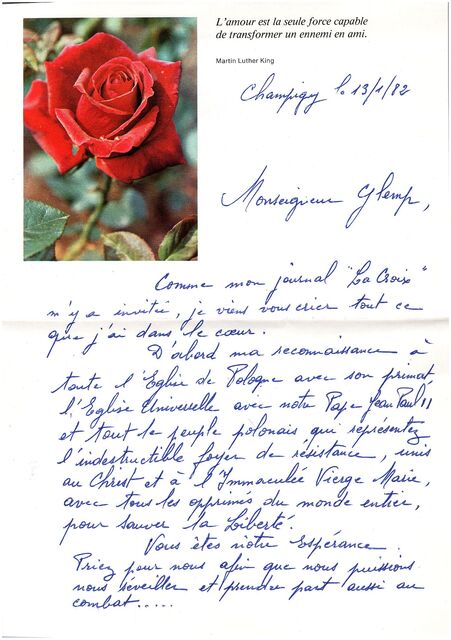 L'amour est la seule force capable
de transformer un ennemi en ami.
Martin Luther King
Champigy le 13/1/82
Monseigneur Glemp,
Comme mon journal "La Croix"
m'y a invitée, je viens vous crier tout ce
que j'ai dans le cœur.
D'abord ma reconnaissance à
toute l'Eglise de Pologne avec son primat
l'Eglise Universelle avec notre Pape Jean Paul II
et tout le peuple polonais qui représentez
l'indestructible foyer de résistance, unis
au Christ et à l'Immaculée Vierge Marie,
avec tous les opprimés du monde entier,
pour sauver la Liberté.
Vous êtes notre Espérance.
Priez pour nous afin que nous puissions
nous réveiller et prendre part aussi au
combat.....